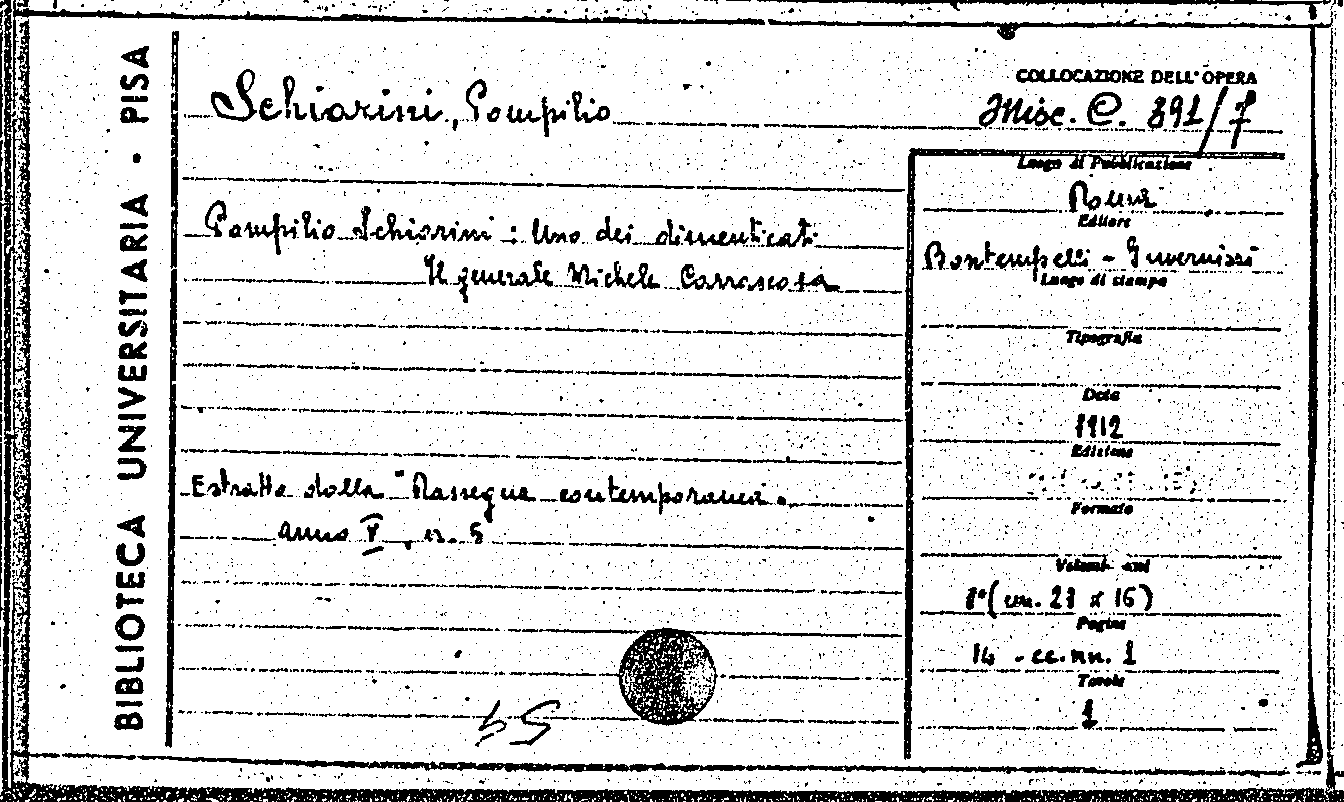 BIBLIOTECA UNIVERSITARIA · PISA
Schiarini, Pompilio
COLLOCAZIONE DELL'OPERA
Misc. C. 391/7
Pompilio Schiarini : Uno dei dimenticati
Il generale Michele Carrascosa
Estratto dalla "Rassegna contemporanea".
anno V, n. 5
54
Luogo di Pubblicazione
Roma
Editore
Bontempelli - Invernizzi
Luogo di stampa
Tipografia
Data
1912
Edizione
Formato
Volumi
8°(cm. 23 x 16)
Pagine
14 - cc.nn. 1
Tavole
1